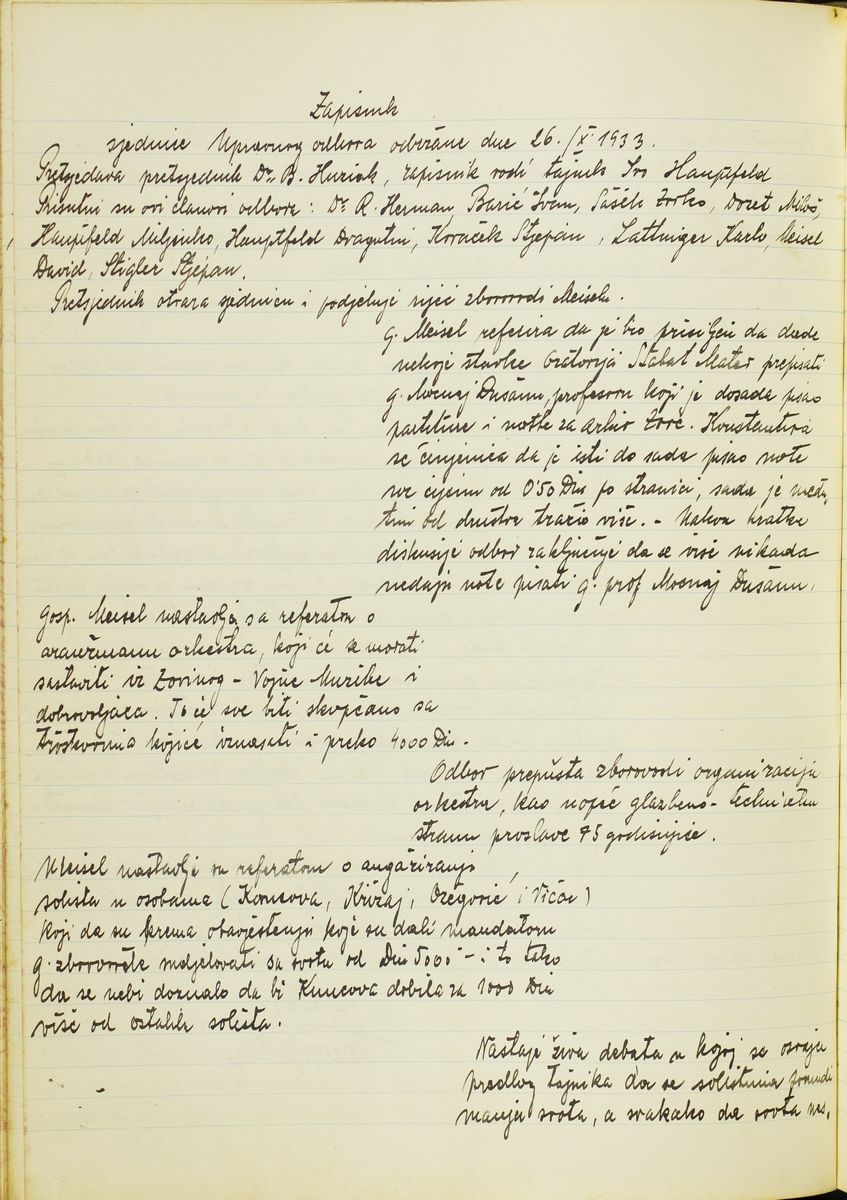 Zapisnik
sjednice Upravnog odbora održane dne 26./X. 1933.
Pretsjedava pretsjednik Dr. B. Huziak, zapisnik vodi tajnik Ivo Hauptfeld
Prisutni su ovi članovi odbora: Dr. R. Herman, Barić Ivan, Sašek Zorko, Dozet Miloš,
Hauptfeld Miljenko, Hauptfeld Dragutin, Kovaček Stjepan, Lattinger Karlo, Meisel
David, Stigler Stjepan.
Pretsjednik otvara sjednicu i podjeljuje riječ zborovodji Meiselu.
g. Meisel referira da je bio prisiljen da dade
nekoje stavke Oratorija Stabat Mater prepisati
g. Mocnaj Dušanu, profesoru koji je dosada pisao
partiture i note za arhiv Zore. Konstatira
se činjenica da je isti do sada pisao note
uz cijenu od 0'50 Din po stranici, sada je među
tim od društva tražio više. - Nakon kratke
diskusije odbor zaključuje da se više nikada
nedaju note pisati g. prof Mocnaj Dušanu.
Gosp. Meisel nastavlja sa referatom o
aranžmanu orkestra, koji će se morati
sastaviti iz Zorinog - Vojne Muzike i
dobrovoljaca. To će sve biti skopčano sa
troškovima kojiće iznašati i preko 4000 Din.
Odbor prepušta zborovodi organizaciju
orkestra, kao uopće glazbeno-tehničku
stranu proslave 75 godišnjice.
Meisel nastavlja sa referatom o angažiranju
solista u osobama (Kouncova, Križaj, Ožegović i Vičar)
koji da su prema obavještenju koje su dali mandatom
g. zborovođe sudjelovati sa svotu od Din 5000 - i to tako
da se nebi doznalo da bi Kuncova dobila za 1000 Din
više od ostalih solista.
Nastaje živa debata u kojoj se osvaja
predlog tajnika da se solistima ponudi
manja svota, a svakako da svota